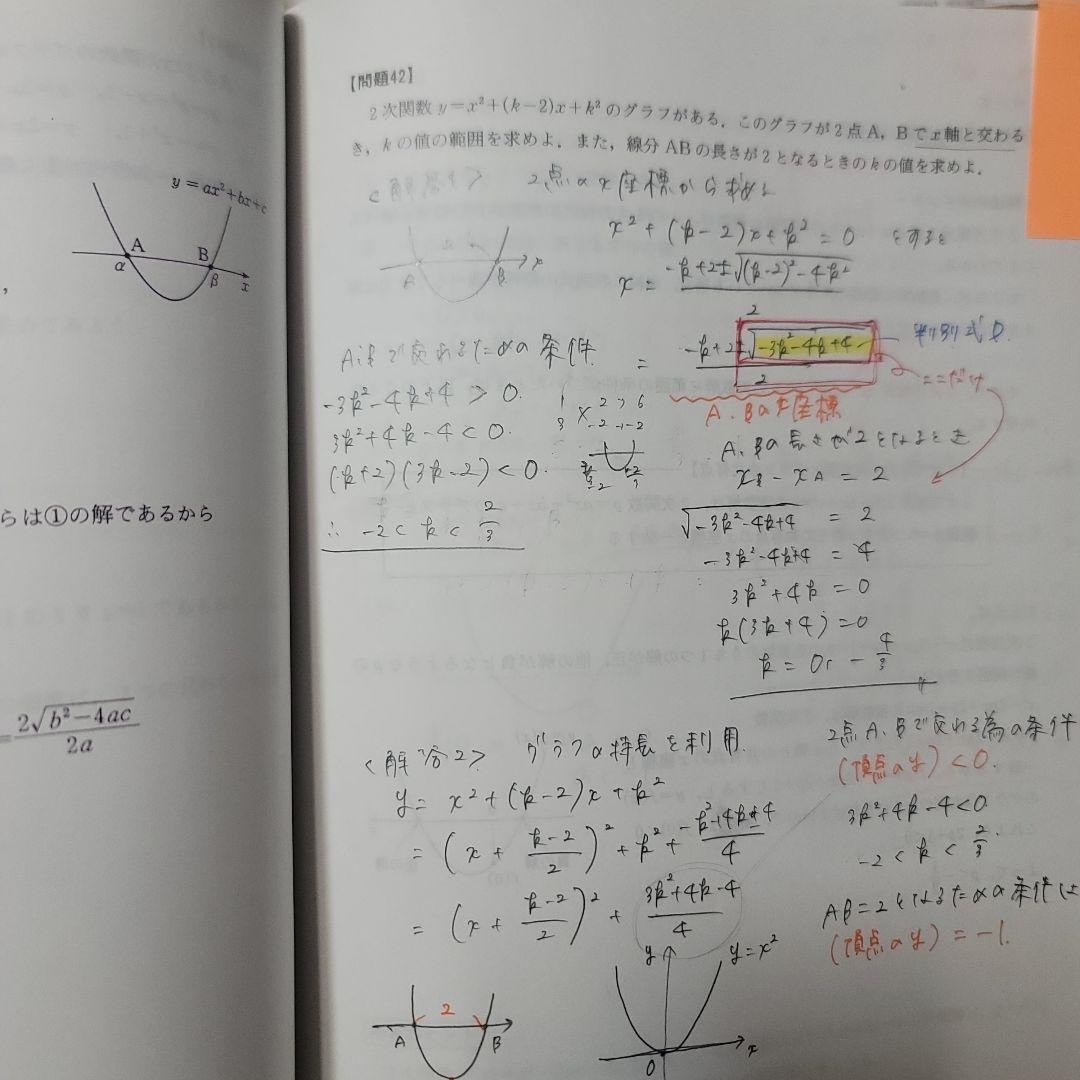 y=ax²+bx+c
A
B
α
β
x
らは①の解であるから
=2√(b²−4ac)/2a
【問題42】
2次関数 y=x²+(k−2)x+k² のグラフがある.このグラフが2点A,Bでx軸と交わる
き,kの値の範囲を求めよ.また,線分ABの長さが2となるときのkの値を求めよ.
2点のx座標から求める
x²+(k−2)x+k²=0 とすると
x=(−k+2±√((k−2)²−4k²))/2
2
A
B
x
=(−k+2±√(−3k²−4k+4))/2
判別式D
ここだけ
A.Bのx座標
A.Bで交わるための条件
−3k²−4k+4>0.
3k²+4k−4<0.
(k+2)(3k−2)<0.
∴ −2<k<2/3
1 2→6
3 −2→−2
−2 2/3
A.Bの長さが2となるとき
xB−xA=2
√(−3k²−4k+4)=2
−3k²−4k+4=4
3k²+4k=0
k(3k+4)=0
k=0, −4/3
<解答2> グラフの特長を利用.
y=x²+(k−2)x+k²
=(x+(k−2)/2)²+k²+(−k²+4k−4)/4
=(x+(k−2)/2)²+(3k²+4k−4)/4
2点A.Bで交わる為の条件
(頂点のy)<0.
3k²+4k−4<0
−2<k<2/3.
AB=2となるための条件は
(頂点のy)=−1.
2
A
B
y
y=x²
O
x